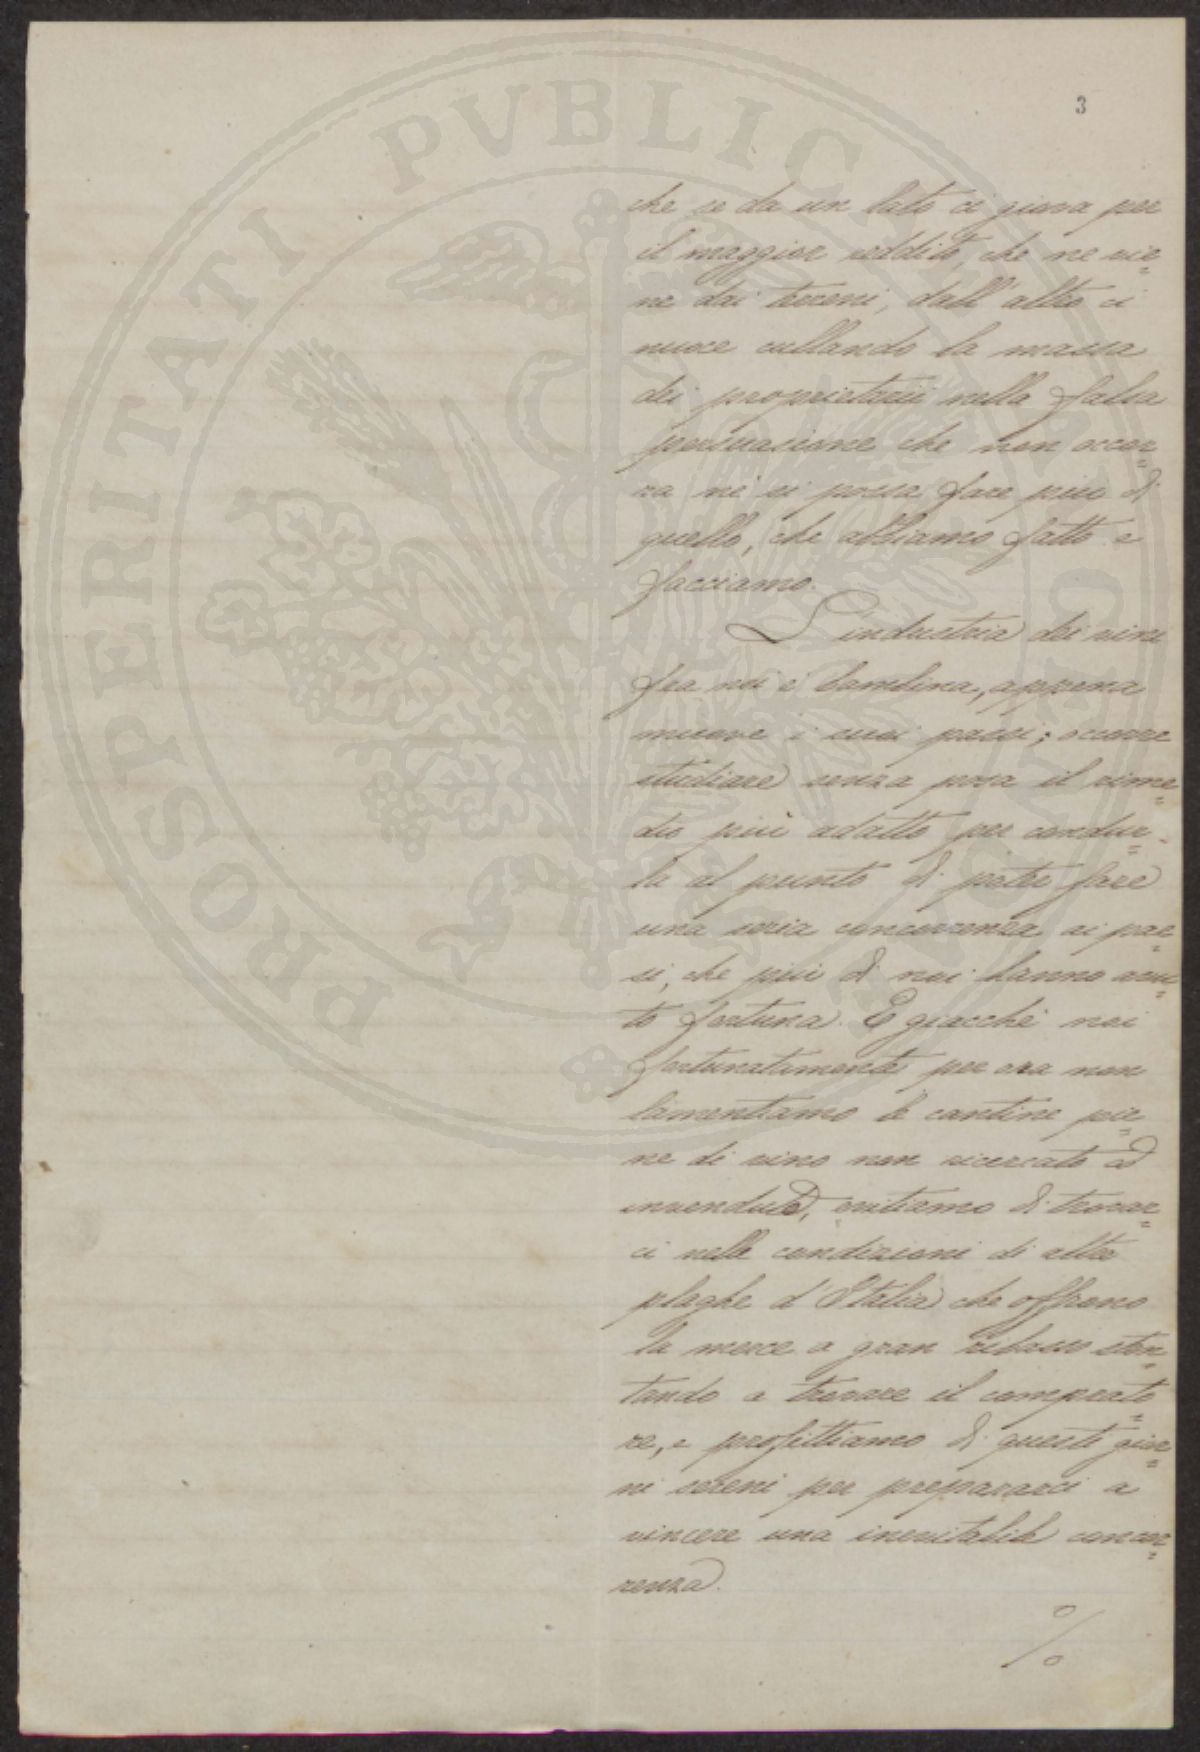 3
che se da un lato ci giova per
il maggior reddito, che ne vie=
ne dai terreni, dall'altro ci
nuoce cullando la massa
dei proprietarii nella falsa
persuasione che non occor=
ra nè si possa fare più di
quello, che abbiamo fatto e
facciamo.
L'industria dei vini
fra noi è bambina, appena
muove i suoi passi; occorre
studiare senza posa il rime=
dio più adatto per condur=
la al punto di poter fare
una seria concorrenza ai pae=
si, che più di noi hanno avu=
to fortuna. E giacchè noi
fortunatamente per ora non
lamentiamo le cantine pie=
ne di vino non ricercato ed
invenduto, evitiamo di trovar=
ci nelle condizioni di altre
plaghe d'Italia che offrono
la merce a gran ribasso sten=
tando a trovare il comprato=
re, e profittiamo di questi gior=
ni sereni per prepararci a
vincere una inevitabile concor=
renza.
%
PROSPERITATI PVBLICAE